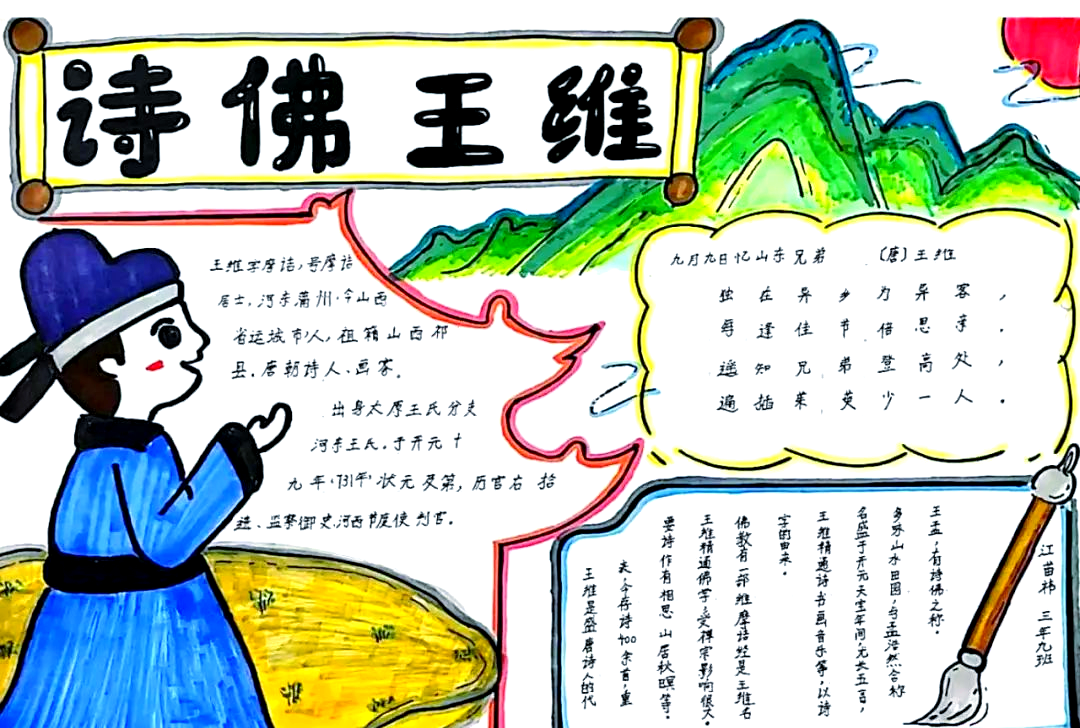 诗佛王维
王维字摩诘,号摩诘
居士,河东蒲州·今山西
省运城市人,祖籍山西祁
县,唐朝诗人、画家。
出身太原王氏分支
河东王氏,于开元十
九年·731年·状元及第,历官右拾
遗、监察御史,河西节度使判官。
九月九日忆山东兄弟 (唐)王维
独在异乡为异客,
每逢佳节倍思亲。
遥知兄弟登高处,
遍插茱萸少一人。
王维是盛唐诗人的代
表,今存诗400余首,重
要诗作有相思 山居秋暝等。
王维精通佛学,受禅宗影响很大。
佛教有一部维摩诘经是王维名
字的由来。
王维精通诗书画音乐等,以诗
名盛于开元天宝年间,尤长五言,
多咏山水田园,与孟浩然合称
王孟,有诗佛之称。
江苗祎 三年九班